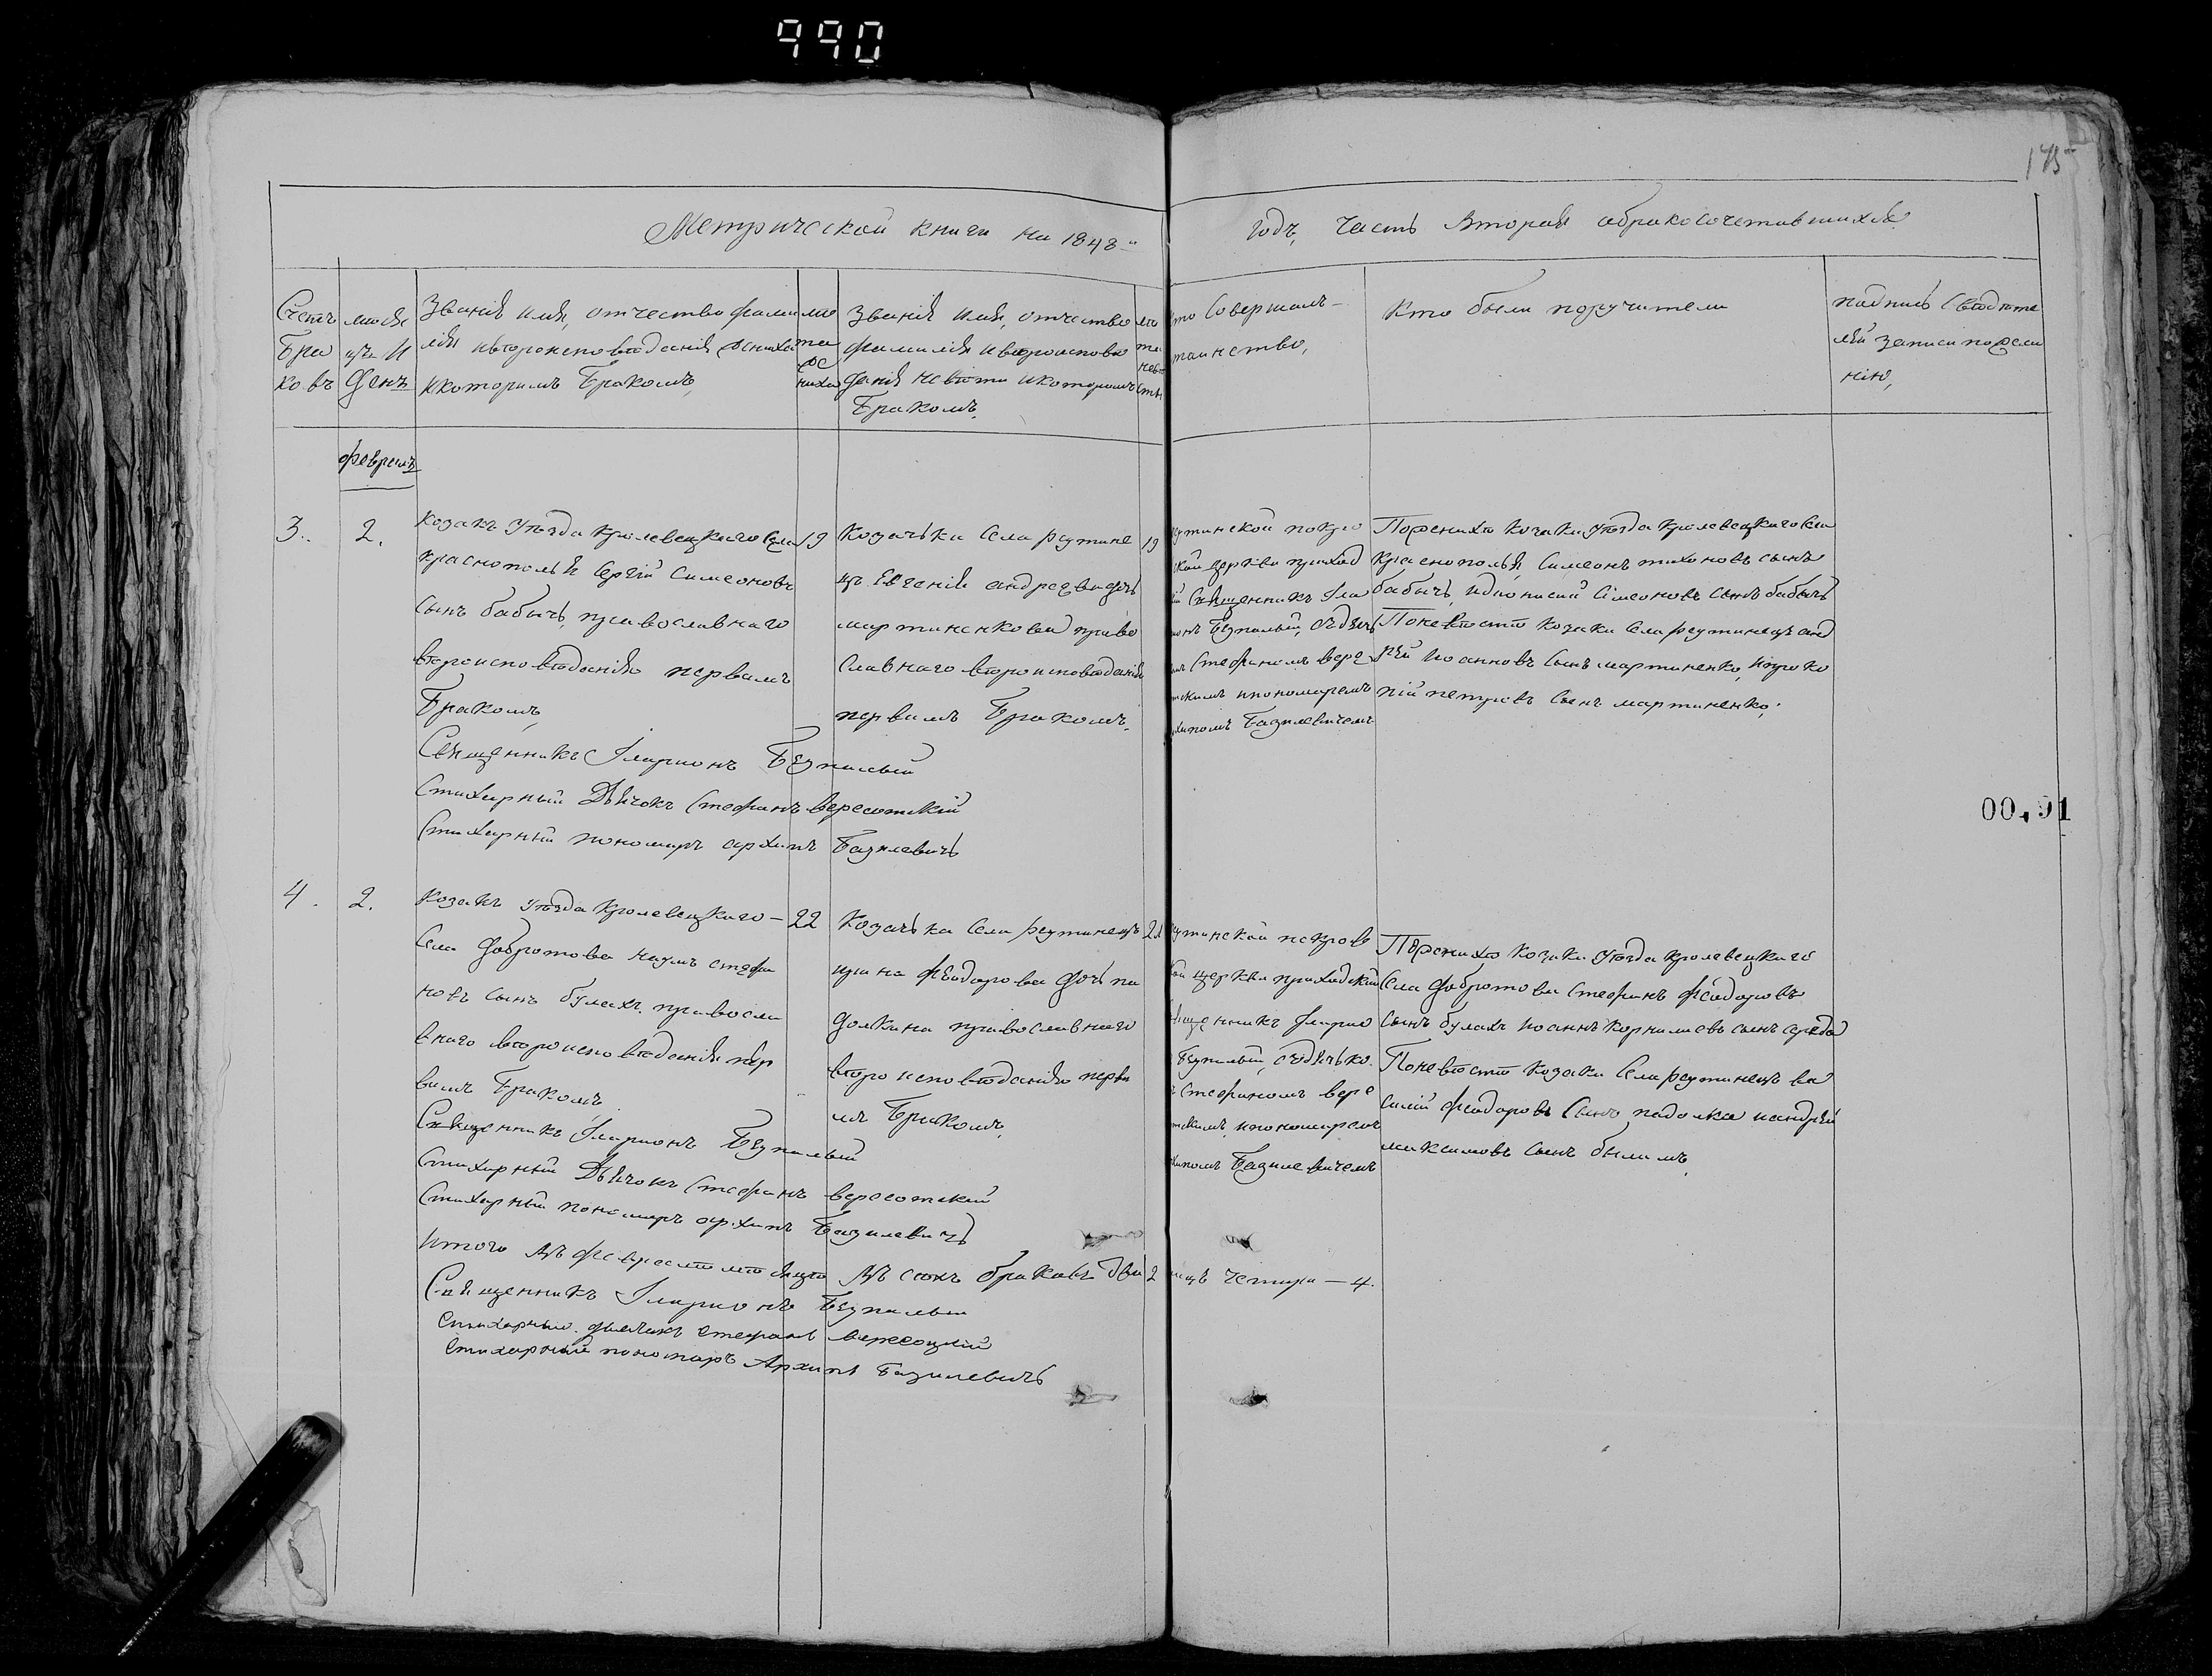 990
175
Метрической книги на 1848й
годъ, Часть Вторая обракосочетавшихся
Счетъ
бра
ковъ
месяс
цъ и
День
Званія имя, отчество фами
лія ивѣроисповѣданія жениха
икоторимъ Бракомъ,
лѣ
та
же
ниха
Званія имя, отчество
фамилія ивѣроисповѣ
данія невѣсти икоторимъ
Бракомъ,
лѣ
та
невѣ
сты
кто Совершалъ
таинство,
Кто были поручители
подпись Свѣдѣте
лей записи пожела
нію,
февраль
3.
2.
Козакъ Уѣзда Кролевецкаго Села
Краснополья Сергій Симеоновъ
Сынъ бабичъ, православнаго
вѣроисповѣданія первымъ
Бракомъ,
19
Козачька Села реутине
цъ Евгенія андреева дочъ
мартиненкова право
Славнаго вѣроисповѣданія
первимъ Бракомъ,
19
утинской покро
ской церкви приход
Священникъ Ила
онъ Безпалый, Сдяч
Стефаномъ вере
тскимъ ипономаремъ
хипомъ Базилевичемъ
Поженихѣ козаки Уѣзда кролевецкаго Села
Краснополья, Симеонъ тихоновъ сынъ
бабичъ, идионисий Симеоновъ сынъ бабичъ
Поневѣстѣ козаки Села реутинецъ анд
рей иоанновъ Сынъ мартиненко, ипроко
пій петровъ Сынъ мартиненко,
Священникъ Іларионъ Безпалый
Стихарный Дьячокъ Стефанъ вересотскій
Стихарный пономаръ архипъ Базилевичъ
00,91
4.
2.
Козакъ уѣзда Кролевецкаго
Села Добротова наумъ стефа
новъ сынъ булахъ, правосла
внаго вѣроисповѣданія пер
вимъ Бракомъ
22
Козачька Села реутинецъ
ирина Феодорова дочъ па
долкина православнаго
вѣроисповѣданія перви
мъ Бракомъ,
21
утинской покров
кой церкви приходский
щенникъ Іларио
Безпалый, сдячько
Стефаномъ вере
тскимъ, ипономаремъ
хипомъ Базилевичемъ
Поженихѣ козаки Уѣзда кролевецкаго
Села добротова Стефанъ Феодоровъ
Сынъ булахъ иоаннъ Корнилиевъ сынъ середа
Поневѣстѣ козаки Села реутинецъ ва
силій Феодоровъ Сынъ падолка иандрей
максимовъ сынъ билимъ,
Священникъ Іларионъ Безпалый
Стихарный Дьячокъ Стефанъ вересотский
Стихарный пономаръ архипъ Базилевичъ
Итого въ февралѣ мѣсяцѣ браковъ два 2
четири — 4.
Священникъ Іларионъ Безпалый
Стихарный дьячокъ Стефанъ вересоцкій
Стихарный пономаръ Архипъ Базилевичъ